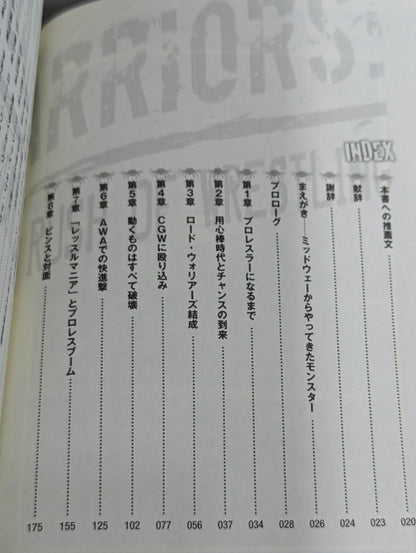 RRIORS:
ROAD OF WRESTLING
INDEX
本書への推薦文 020
献辞 023
謝辞 024
まえがき――ミッドウェーからやってきたモンスター 026
プロローグ 028
第1章 プロレスラーになるまで 034
第2章 用心棒時代とチャンスの到来 037
第3章 ロード・ウォリアーズ結成 056
第4章 CGWに殴り込み 077
第5章 動くものはすべて破壊 102
第6章 AWAでの快進撃 125
第7章 「レッスルマニア」とプロレスブーム 155
第8章 ビンスと対面 175